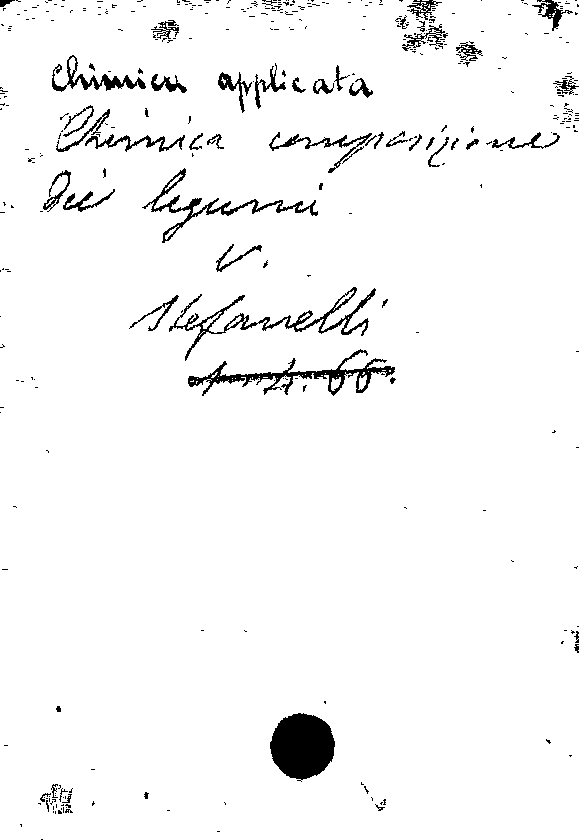 Chimica applicata
Chimica composizione
dei legumi
V.
Stefanelli
1-4.66.